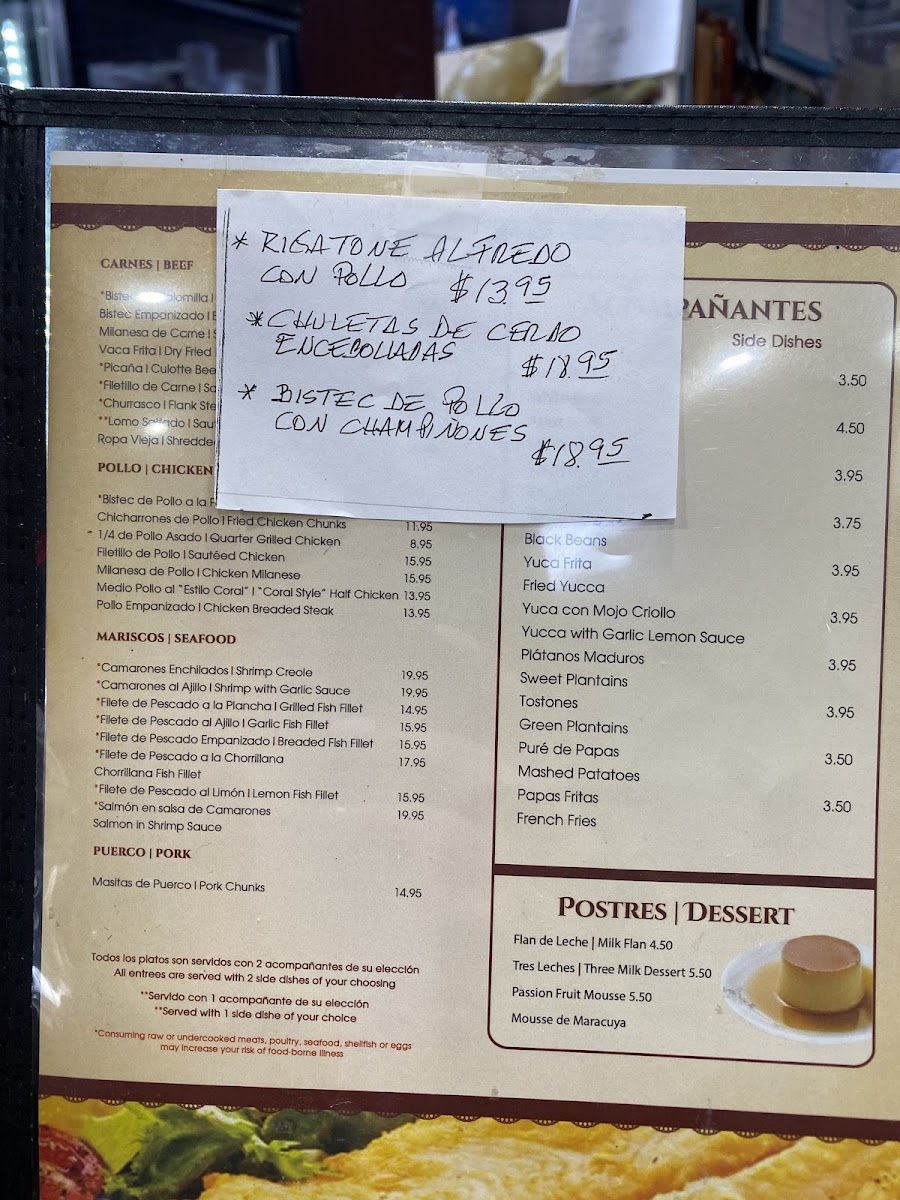 * RIGATONE ALFREDO
CON POLLO $13.95
* CHULETAS DE CERDO
ENCEBOLLADAS $18.95
* BISTEC DE POLLO
CON CHAMPIÑONES
$18.95
CARNES | BEEF
Bistec Empanizado |
Milanesa de Carne |
Vaca Frita | Dry Fried
*Picaña | Culotte Bee
*Filetillo de Carne | Sa
*Churrasco | Flank Ste
**Lomo Saltado | Sau
Ropa Vieja | Shredde
POLLO | CHICKEN
*Bistec de Pollo a la
Chicharrones de Pollo | Fried Chicken Chunks 11.95
1/4 de Pollo Asado | Quarter Grilled Chicken 8.95
Filetillo de Pollo | Sautéed Chicken 15.95
Milanesa de Pollo | Chicken Milanese 15.95
Medio Pollo al "Estilo Coral" | "Coral Style" Half Chicken 13.95
Pollo Empanizado | Chicken Breaded Steak 13.95
MARISCOS | SEAFOOD
*Camarones Enchilados | Shrimp Creole 19.95
*Camarones al Ajillo | Shrimp with Garlic Sauce 19.95
*Filete de Pescado a la Plancha | Grilled Fish Fillet 14.95
*Filete de Pescado al Ajillo | Garlic Fish Fillet 15.95
*Filete de Pescado Empanizado | Breaded Fish Fillet 15.95
*Filete de Pescado a la Chorrillana 17.95
Chorrillana Fish Fillet
*Filete de Pescado al Limón | Lemon Fish Fillet 15.95
*Salmón en salsa de Camarones 19.95
Salmon in Shrimp Sauce
PUERCO | PORK
Masitas de Puerco | Pork Chunks 14.95
Todos los platos son servidos con 2 acompañantes de su elección
All entrees are served with 2 side dishes of your choosing
**Servido con 1 acompañante de su elección
**Served with 1 side dishe of your choice
*Consuming raw or undercooked meats, poultry, seafood, shellfish or eggs
may increase your risk of food-borne illness
PAÑANTES
Side Dishes
3.50
4.50
3.95
3.75
Black Beans
Yuca Frita 3.95
Fried Yucca
Yuca con Mojo Criollo 3.95
Yucca with Garlic Lemon Sauce
Plátanos Maduros 3.95
Sweet Plantains
Tostones 3.95
Green Plantains
Puré de Papas 3.50
Mashed Patatoes
Papas Fritas 3.50
French Fries
POSTRES | DESSERT
Flan de Leche | Milk Flan 4.50
Tres Leches | Three Milk Dessert 5.50
Passion Fruit Mousse 5.50
Mousse de Maracuya